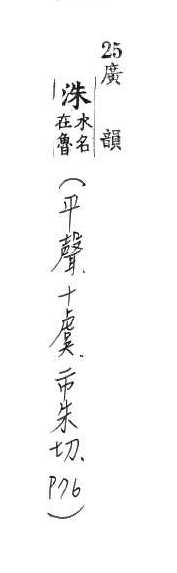 25廣韻
洙水名在魯(平聲.十虞.市朱切.P76)